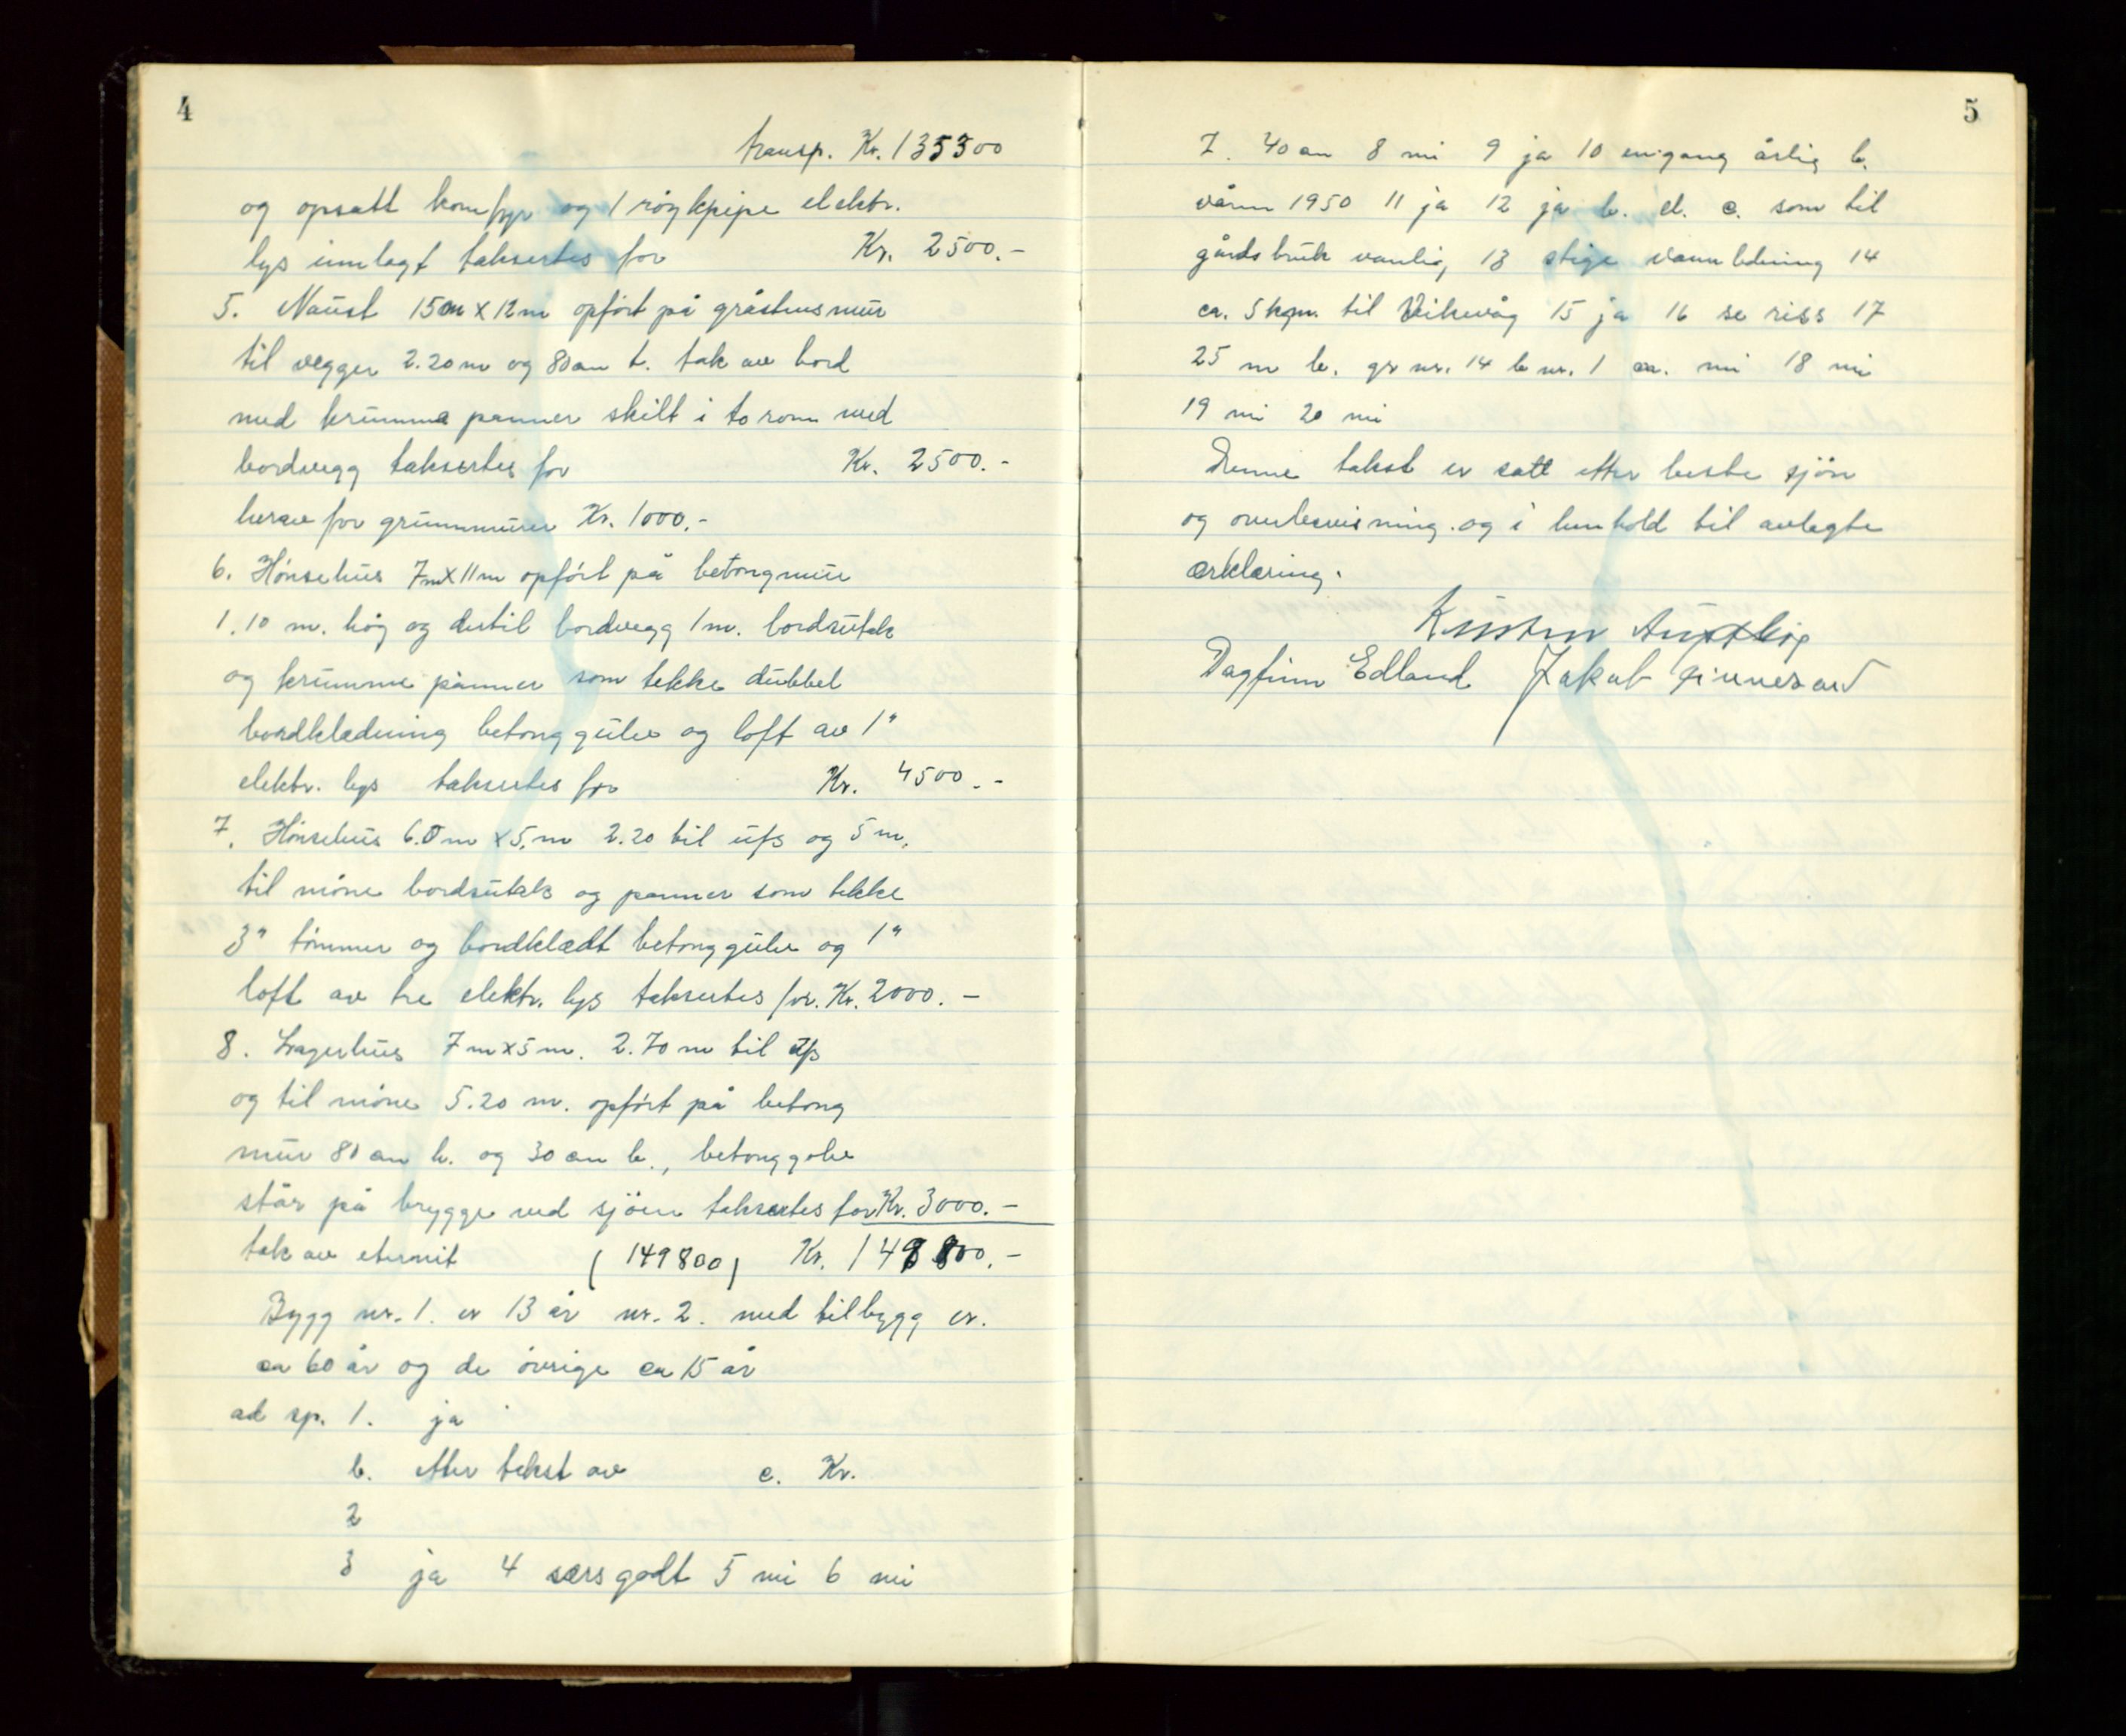 4
transp. Kr. 135300
og opsatt komfyr og 1 röykpipe elektr.
lys innlagt taksertes for Kr. 2500.-
5. Naust 15m x 12m opfört på gråstensmur
til vegger 2.20 m og 80 cm t. tak av bord
med krumma panner skilt i to rom med
bordvegg taksertes for Kr. 2500.-
herav for grunnmuren Kr. 1000.-
6. Hönsehus 7m x 11m opfört på betongmur
1.10 m. höy og dertil bordvegg 1m. bordsutak
og krumme panner som tekke dubbel
bordklædning betonggulv og loft av 1"
elektr. lys taksertes for Kr. 4500.-
7. Hönsehus 6.0m x 5.m 2.20 til ufs og 5 m.
til möne bordsutak og panner som tekke
3" tömmer og bordklædt betonggulv og 1"
loft av tre elektr. lys taksertes for. Kr. 2000.-
8. Lagerhus 7m x 5m. 2.70 m til ufs
og til möne 5.20 m. opfört på betong
mur 80 cm h. og 30 cm b., betonggolv
står på brygge ved sjöen taksertes for Kr. 3000.-
tak av eternit (149800) Kr. 149800.-
Bygg nr. 1. er 13 år nr. 2. med tilbygg er.
ca 60 år og de övrige ca 15 år
ad sp. 1. ja
b. etter takst av c. Kr.
2
3 ja 4 særs godt 5 nei 6 nei
5
7. 40 cm 8 nei 9 ja 10 en gang årlig b.
våren 1950 11 ja 12 ja b. el. c. som til
gårdsbruk vanlig 13 stige vannledning 14
ca. 5 kgm. til Vikevåg 15 ja 16 se riss 17
25 m b. gr nr. 14 b nr. 1 ca. nei 18 nei
19 nei 20 nei
Denne takst er satt etter beste sjön
og overbevisning. og i henhold til avlagte
erklæring.
Dagfinn Edland Jakob